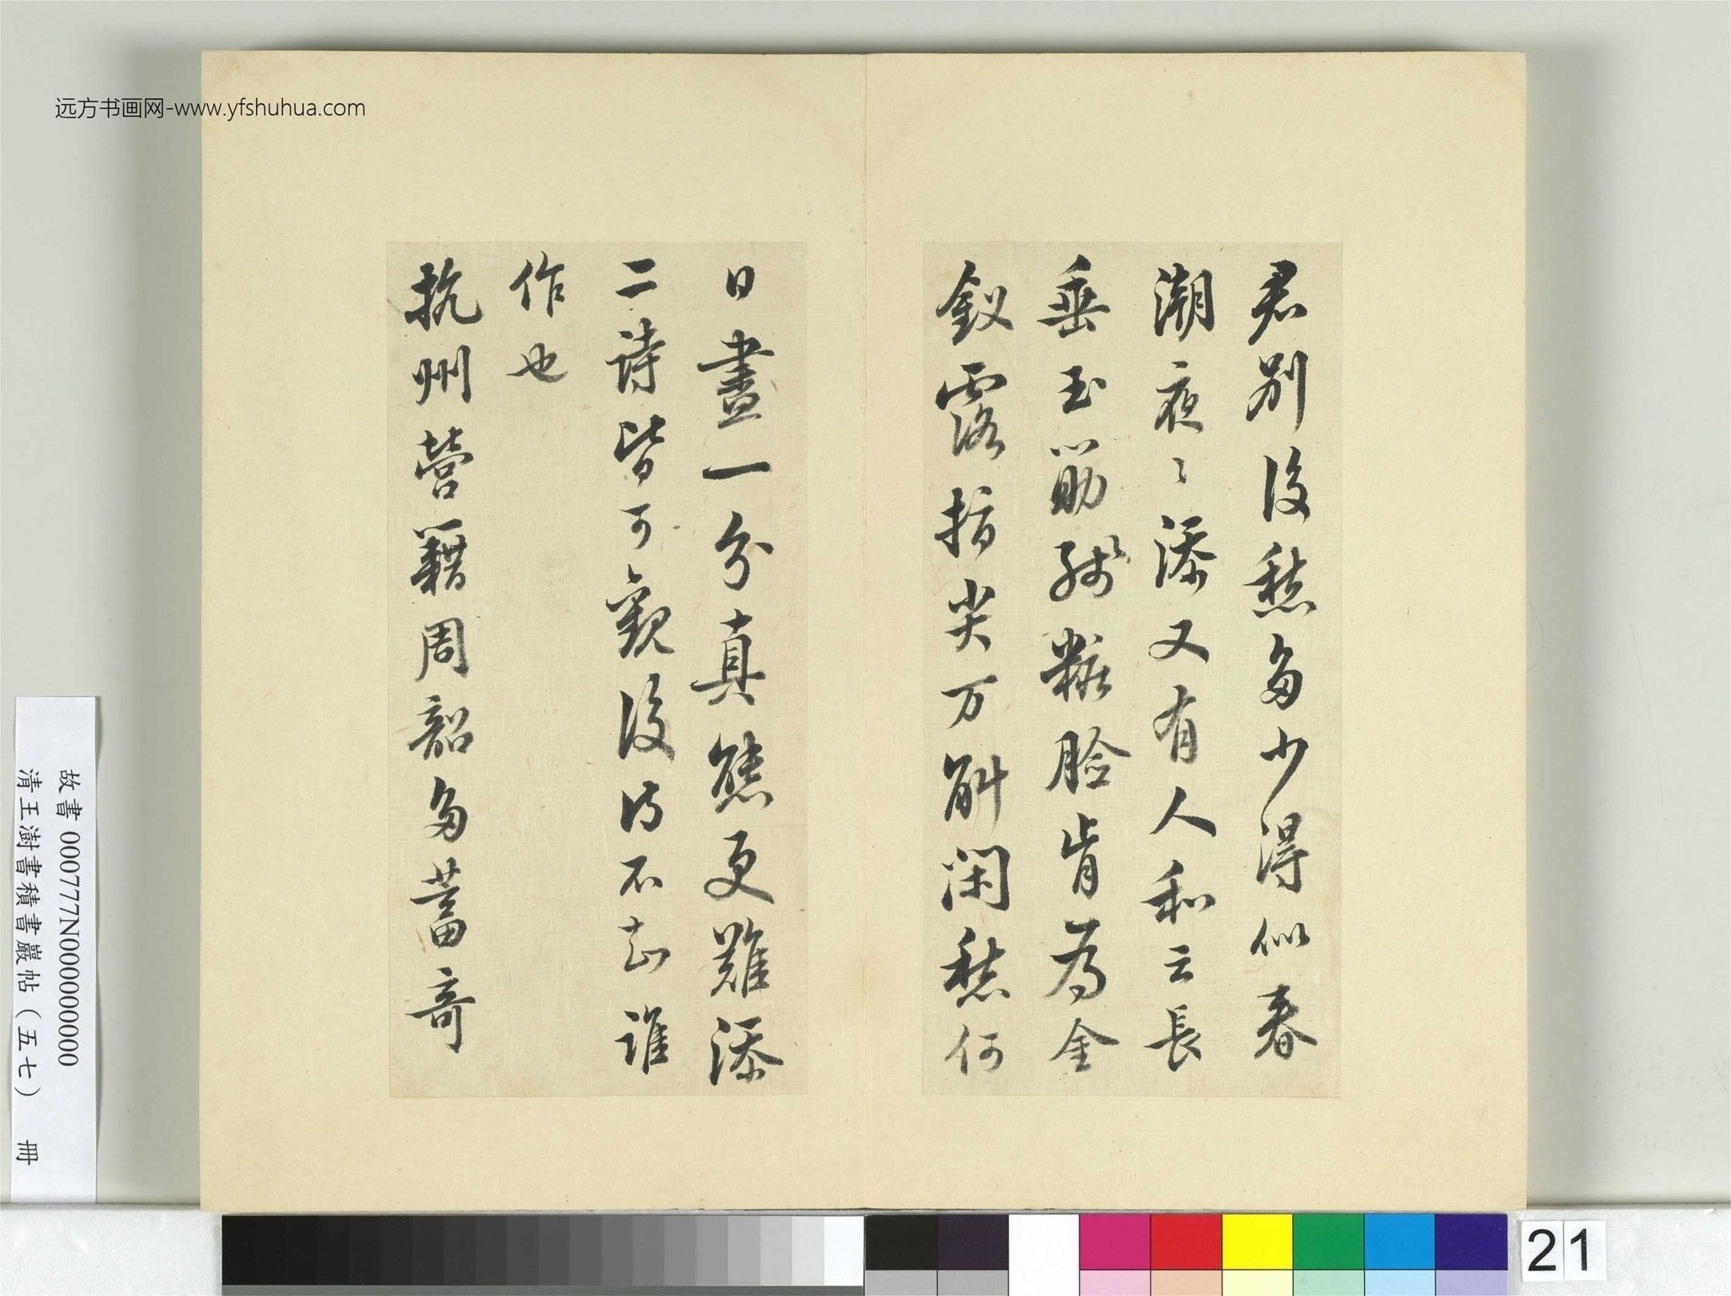 远方书画网-www.yfshuhua.com
君别後愁多少得似春
潮夜〻添又有人和云長
垂玉筯殘粧臉肯為金
釵露指尖万斛閑愁何
日盡一分真態更難添
二詩皆可觀後詩不知誰
作也
杭州營籍周韶多蓄奇
故書 000777N000000000
清王澍書積書巖帖(五七) 冊
21